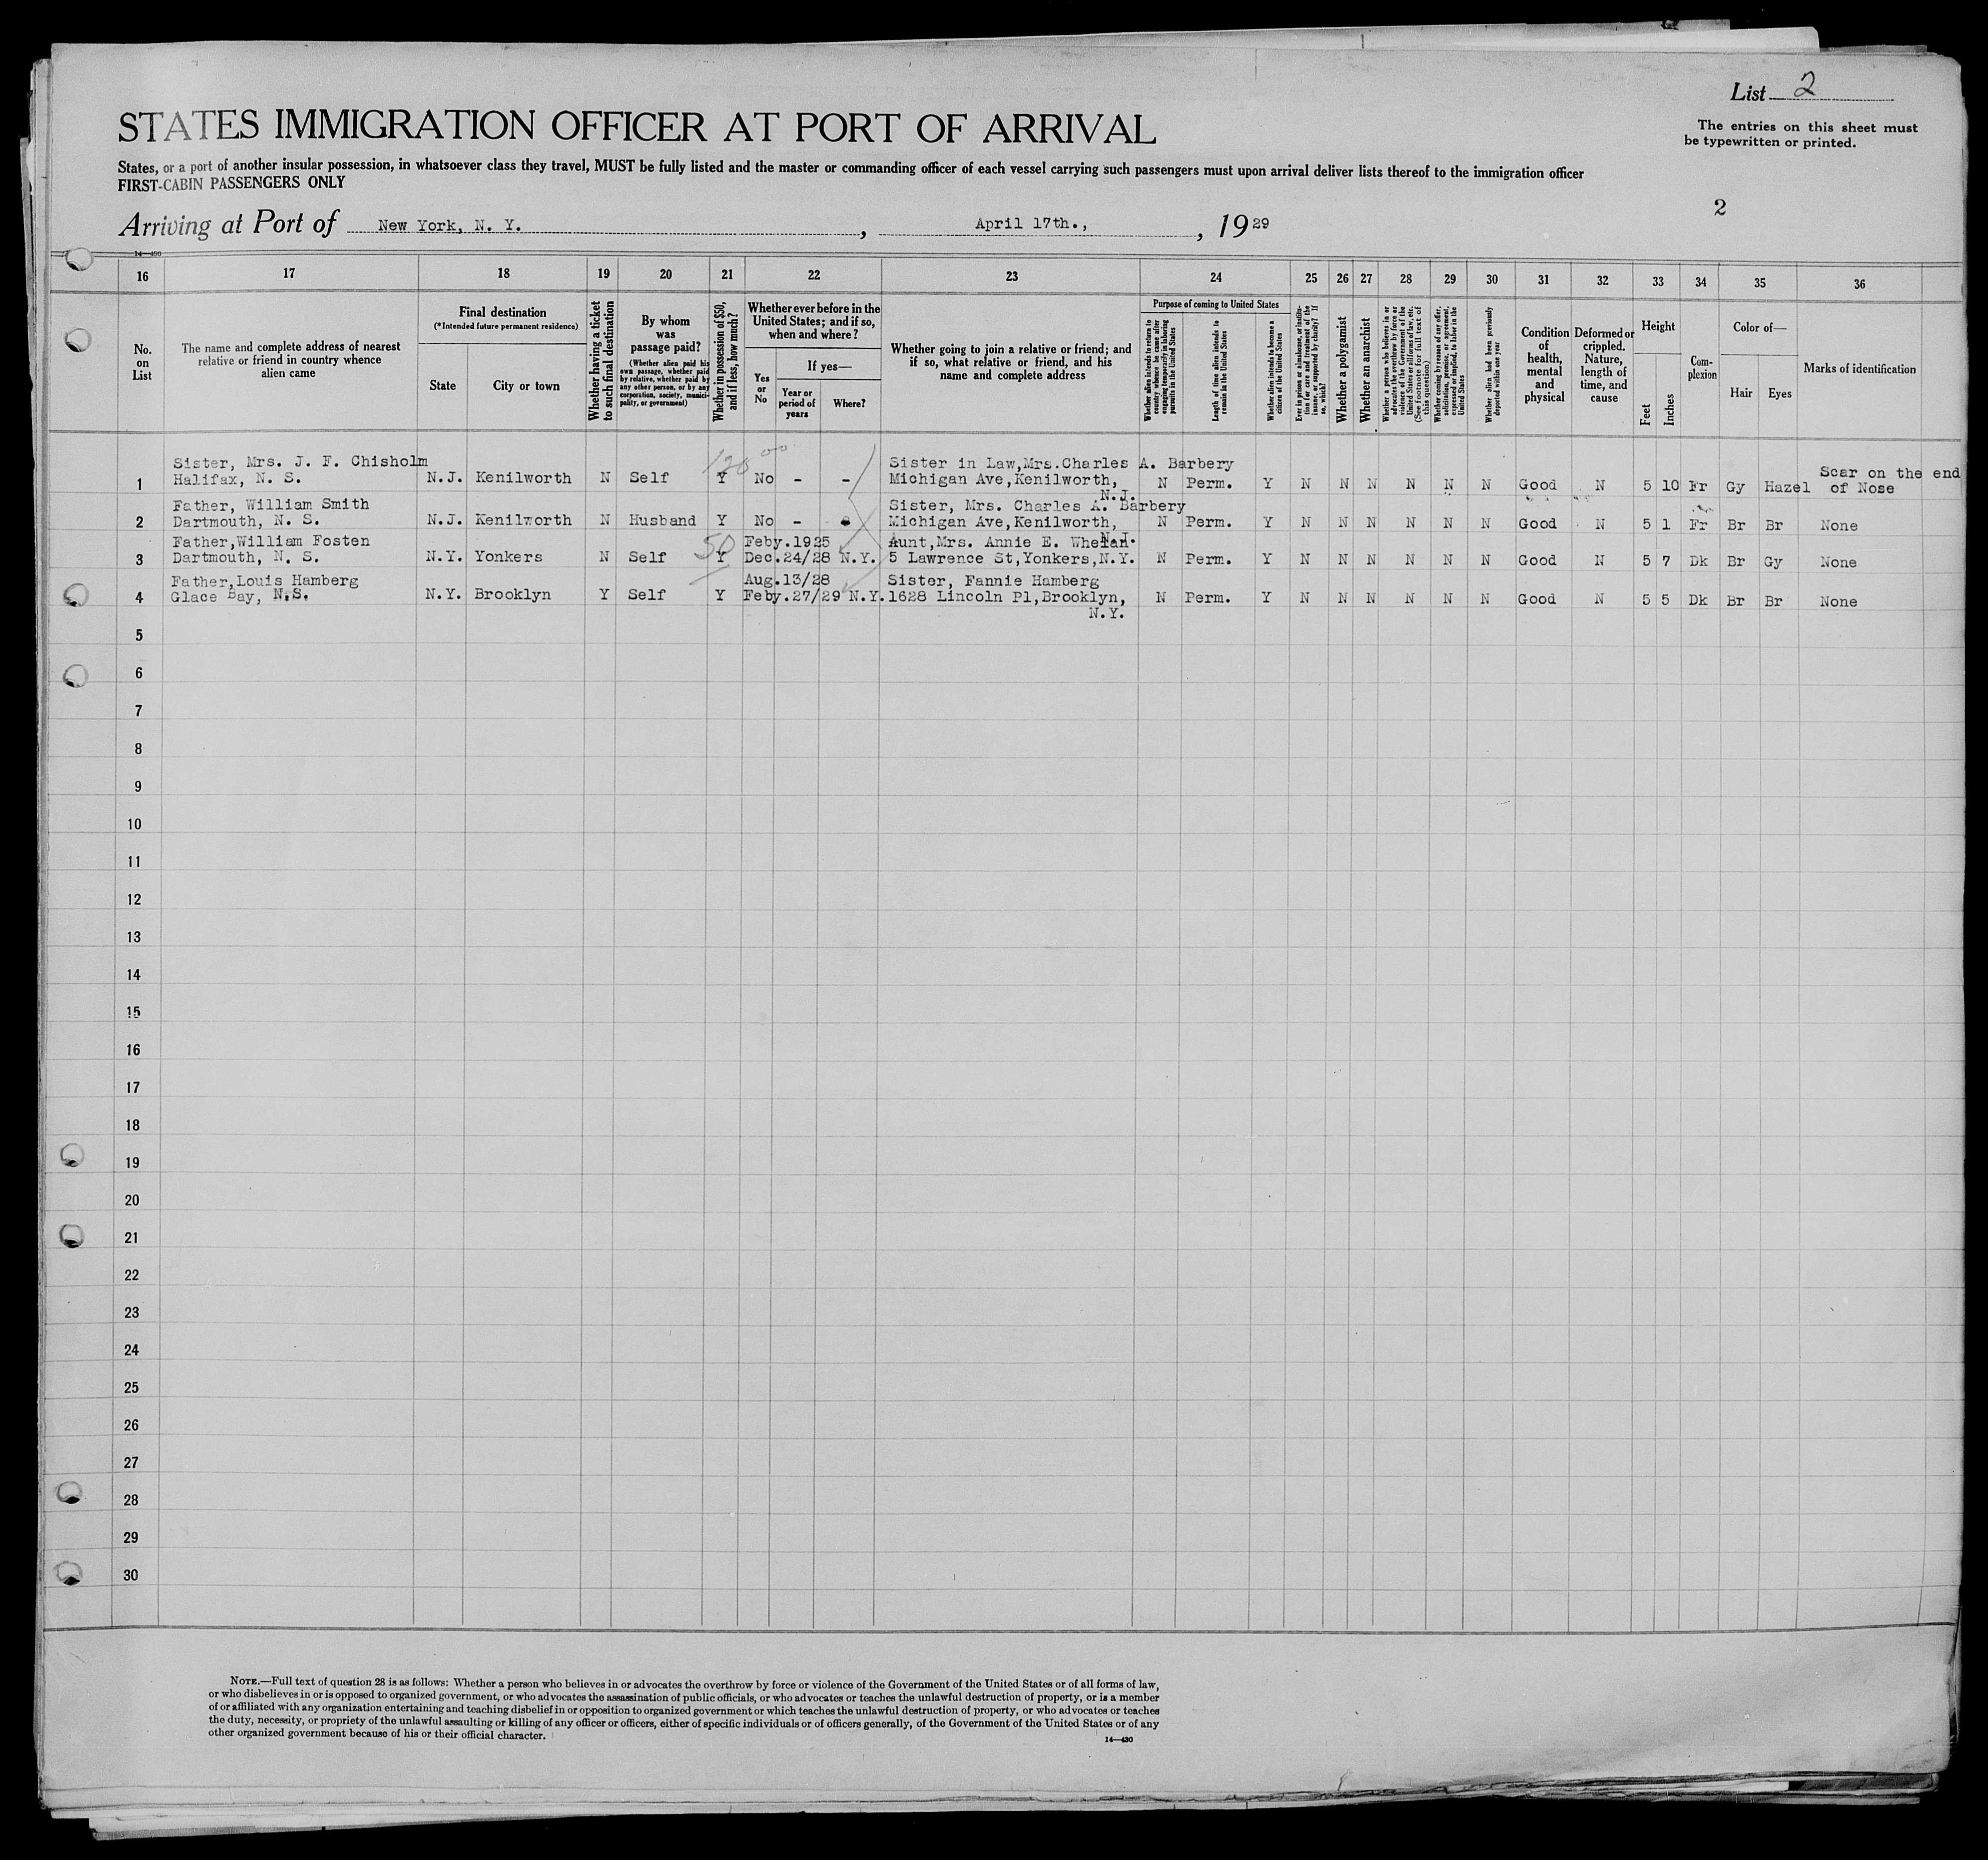 List 2
STATES IMMIGRATION OFFICER AT PORT OF ARRIVAL
The entries on this sheet must
be typewritten or printed.
States, or a port of another insular possession, in whatsoever class they travel, MUST be fully listed and the master or commanding officer of each vessel carrying such passengers must upon arrival deliver lists thereof to the immigration officer
FIRST-CABIN PASSENGERS ONLY
2
Arriving at Port of New York, N. Y. , April 17th., , 1929
14—430
16 17 18 19 20 21 22 23 24 25 26 27 28 29 30 31 32 33 34 35 36
No.
on
List
The name and complete address of nearest
relative or friend in country whence
alien came
Final destination
(*Intended future permanent residence)
State
City or town
Whether having a ticket
to such final destination
By whom
was
passage paid?
(Whether alien paid his
own passage, whether paid
by relative, whether paid by
any other person, or by any
corporation, society, munici-
pality, or government)
Whether in possession of $50,
and if less, how much?
Whether ever before in the
United States; and if so,
when and where?
Yes
or
No
If yes—
Year or
period of
years
Where?
Whether going to join a relative or friend; and
if so, what relative or friend, and his
name and complete address
Purpose of coming to United States
Whether alien intends to return to
country whence he came after
engaging temporarily in laboring
pursuits in the United States
Length of time alien intends to
remain in the United States
Whether alien intends to become a
citizen of the United States
Ever in prison or almshouse, or institu-
tion for care and treatment of the
insane, or supported by charity? If
so, which?
Whether a polygamist
Whether an anarchist
Whether a person who believes in or
advocates the overthrow by force or
violence of the Government of the
United States or all forms of law, etc.
(See footnote for full text of
this question)
Whether coming by reason of any offer,
solicitation, promise, or agreement,
expressed or implied, to labor in the
United States
Whether alien had been previously
deported within one year
Condition
of
health,
mental
and
physical
Deformed or
crippled.
Nature,
length of
time, and
cause
Height
Feet
Inches
Com-
plexion
Color of—
Hair
Eyes
Marks of identification
Sister, Mrs. J. F. Chisholm 120 00 Sister in Law,Mrs.Charles A. Barbery Scar on the end
1 Halifax, N. S. N.J. Kenilworth N Self Y No - - Michigan Ave,Kenilworth, N Perm. Y N N N N N N Good N 5 10 Fr Gy Hazel of Nose
N.J.
Father, William Smith Sister, Mrs. Charles A. Barbery
2 Dartmouth, N. S. N.J. Kenilworth N Husband Y No - Michigan Ave,Kenilworth, N Perm. Y N N N N N N Good N 5 1 Fr Br Br None
N.J.
Father,William Fosten 50 Feby.1925 Aunt,Mrs. Annie E. Whelan
3 Dartmouth, N. S. N.Y. Yonkers N Self Y Dec.24/28 N.Y. 5 Lawrence St,Yonkers,N.Y. N Perm. Y N N N N N N Good N 5 7 Dk Br Gy None
Father,Louis Hamberg Aug.13/28 Sister, Fannie Hamberg
4 Glace Bay, N.S. N.Y. Brooklyn Y Self Y Feby.27/29 N.Y. 1628 Lincoln Pl,Brooklyn, N Perm. Y N N N N N N Good N 5 5 Dk Br Br None
N.Y.
5
6
7
8
9
10
11
12
13
14
15
16
17
18
19
20
21
22
23
24
25
26
27
28
29
30
NOTE.—Full text of question 28 is as follows: Whether a person who believes in or advocates the overthrow by force or violence of the Government of the United States or of all forms of law,
or who disbelieves in or is opposed to organized government, or who advocates the assassination of public officials, or who advocates or teaches the unlawful destruction of property, or is a member
of or affiliated with any organization entertaining and teaching disbelief in or opposition to organized government or which teaches the unlawful destruction of property, or who advocates or teaches
the duty, necessity, or propriety of the unlawful assaulting or killing of any officer or officers, either of specific individuals or of officers generally, of the Government of the United States or of any
other organized government because of his or their official character.
14—430